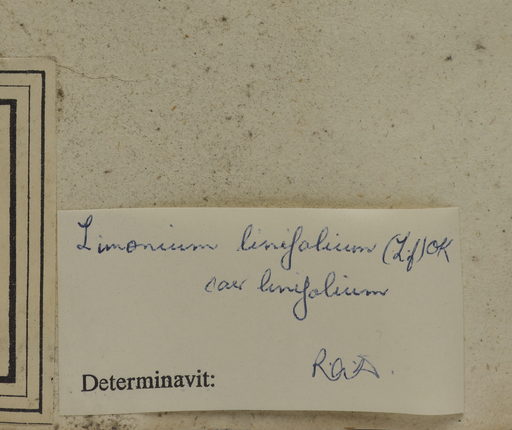 Limonium linifolium (L.f) OK
var linifolium
R.A.D.
Determinavit: